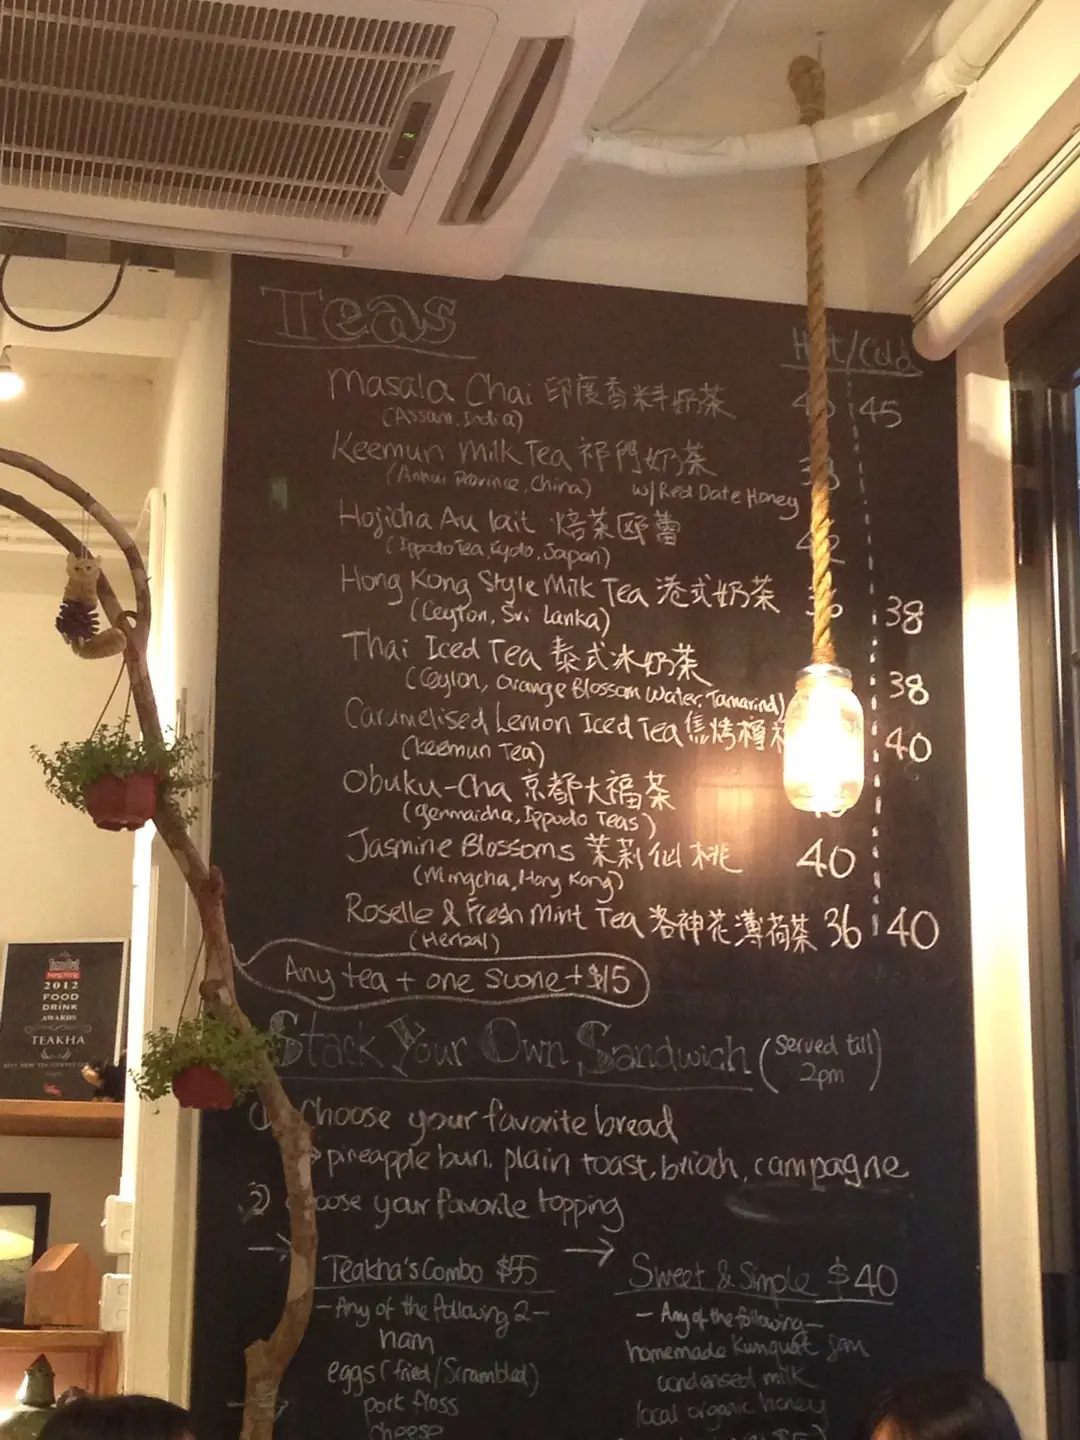 Teas
Hot/Cold
Masala Chai 印度香料奶茶 45
(Assam, India)
Keemun Milk Tea 祁門奶茶
(Anhui Province, China) w/ Red Date Honey
Hojicha Au lait 焙茶歐蕾
(Ippodo Tea, Kyoto, Japan)
Hong Kong Style Milk Tea 港式奶茶 38
(Ceylon, Sri Lanka)
Thai Iced Tea 泰式冰奶茶 38
(Ceylon, Orange Blossom Water, Tamarind)
Caramelised Lemon Iced Tea 焦烤檸 40
(Keemun Tea)
Obuku-Cha 京都大福茶
(Genmaicha, Ippodo Teas)
Jasmine Blossoms 茉莉仙桃 40
(Mingcha, Hong Kong)
Roselle & Fresh Mint Tea 洛神花薄荷茶 36 40
(Herbal)
Any tea + one scone +$15
Stack Your Own Sandwich (served till 2pm)
Choose your favorite bread
pineapple bun, plain toast, brioch, campagne
2) oose your favorite topping
Teakha's Combo $55
- Any of the following 2 -
ham
eggs (fried/Scrambled)
pork floss
cheese
Sweet & Simple $40
- Any of the following -
homemade Kumquat jam
condensed milk
local organic honey
2012
FOOD
DRINK
AWARDS
TEAKHA